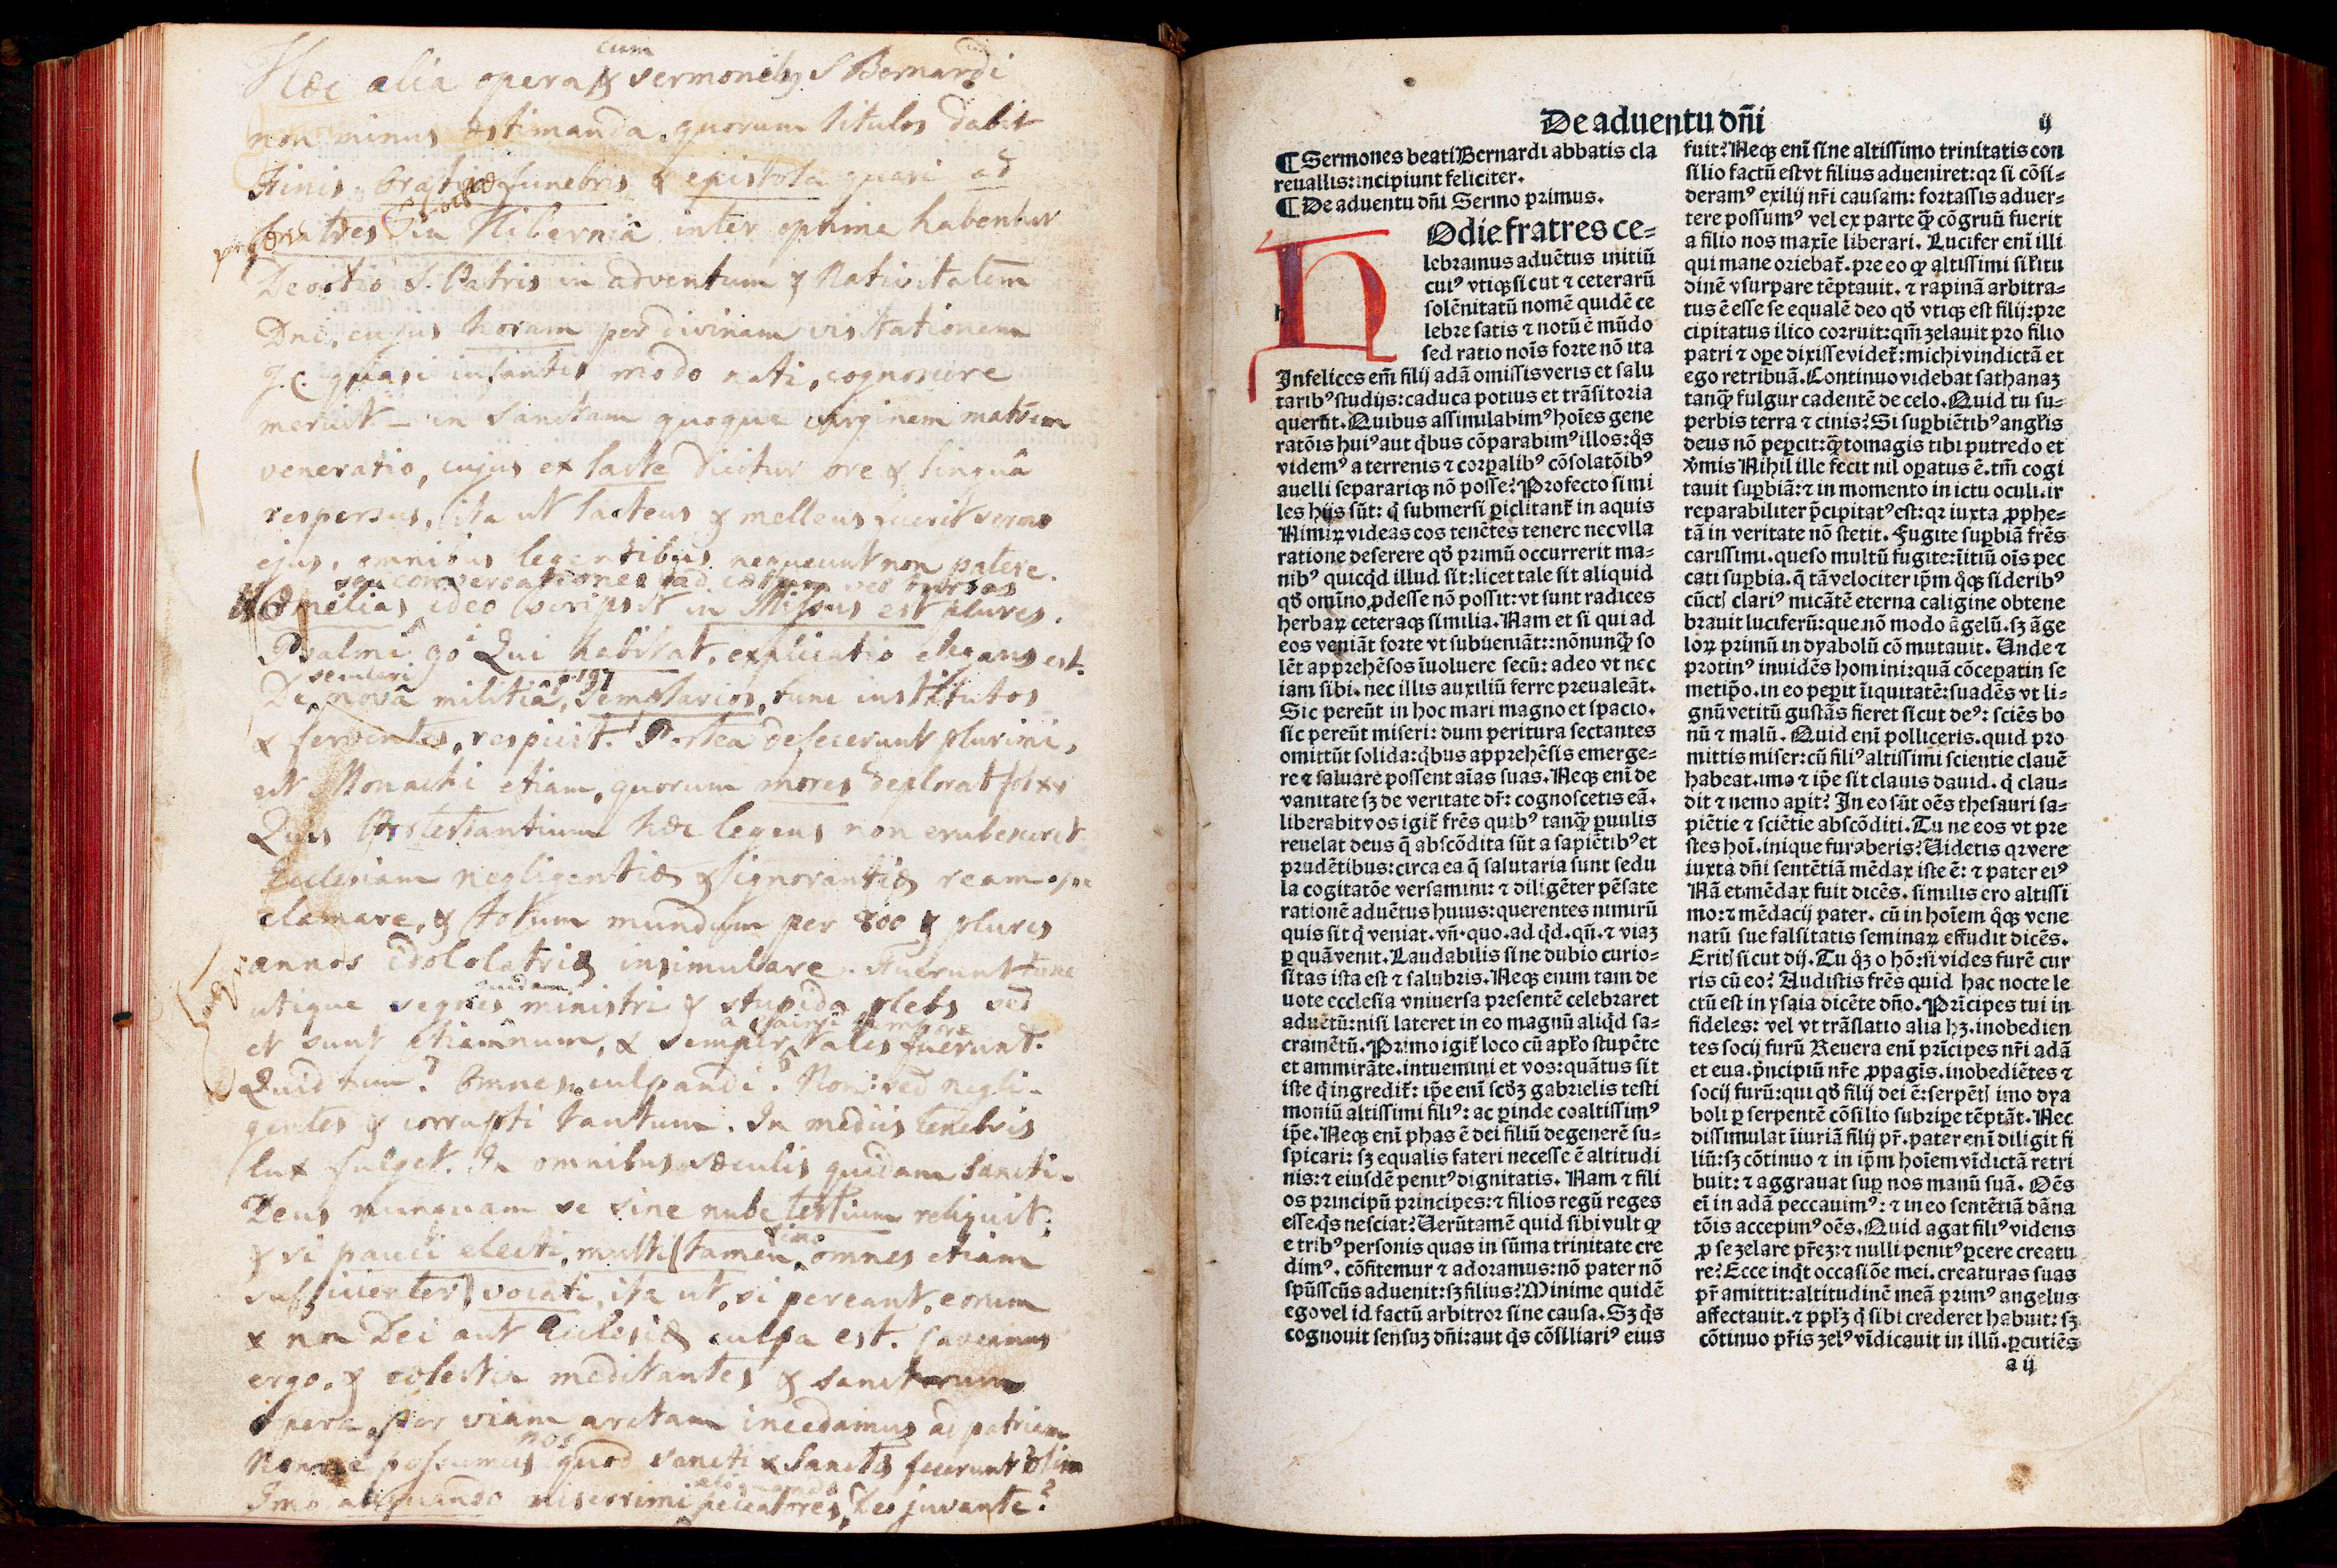 cum
Hæc alia opera & sermonibus S Bernardi
non minus æstimanda, quorum titulos dabit
Finis. Oratio funebris & epistola quasi ad
fratres in Hibernia inter optime habentur
Devotio S. Patris in adventum & Nativitatem
Dni, cujus horam per divinam visitationem
J.C. quasi infantis modo nati, cognoscere
meruit – in Sanctam quoque virginem matrem
veneratio, cujus ex lacte dicitur ore & linguâ
respersus, ita ut lacteus & melleus sermo
ejus, omnibus legentibus nequeunt non patere.
Homelias ideo scripsit in Missus est plures.
Psalmi 90 Qui habitat, explicatio elegans est.
p.197
De novâ militiâ, Templarios, tunc institutos
& ferventes, respicit. Postea defecerunt plurimi,
ut Monachi etiam, quorum mores deplorat fol xv
Quis Protestantium hæc legens non erubesceret
Ecclesiam negligentiæ & ignorantiæ ream
clamare, & totum mundum per 800 & plures
annos idololatriæ insimulare. Fuerunt tunc
quidam
utique segnes ministri & stupida plebs sed
et sunt etiamnum, & semper tales fuerunt.
Quid tum? Omnes culpandi? Non: sed negli-
gentes & corrupti tantum. In mediis tenebris
lux fulget. In omnibus sæculis quidam Sancti.
Deus nunquam se sine nube testium reliquit;
imo
& si pauci electi, multi (tamen, omnes etiam
sufficienter) vocati, ita ut, si pereant, eorum
& non Dei aut Ecclesiæ culpa est. Caveamus
ergo, & cælestia meditantes & sanctorum
opera, per viam arctam incedamus ad patriam
nos
Nonne possumus quod Sancti & Sanctæ fecerunt olim
Imo aliquando miserrimi peccatores, Deo juvante?
De aduentu dñi
ij
¶ Sermones beati Bernardi abbatis cla
reuallis: incipiunt feliciter.
¶ De aduentu dñi Sermo primus.
h
Odie fratres ce⸗
lebramus aduẽtus initiũ
cuiꝰ vtiqꝫ sicut ⁊ ceterarũ
solẽnitatũ nomẽ quidẽ ce
lebre satis ⁊ notũ ẽ mũdo
sed ratio noĩs forte nõ ita
Infelices em̃ filij adã omissis veris et salu
taribꝰ studijs: caduca potius et trãsitoria
querũt. Quibus assimilabimꝰ hoĩes gene
ratõis huiꝰ aut q̃bus cõparabimꝰ illos: q̃s
videmꝰ a terrenis ⁊ corꝑalibꝰ cõsolatõibꝰ
auelli separariqꝫ nõ posse? Profecto simi
les hijs sũt: q̃ submersi ꝑiclitant̃ in aquis
Nimiꝝ videas eos tenẽtes tenere nec vlla
ratione deserere qđ primũ occurrerit ma⸗
nibꝰ quicq̃d illud sit: licet tale sit aliquid
qđ omĩno ꝓdesse nõ possit: vt sunt radices
herbaꝝ ceteraqꝫ similia. Nam et si qui ad
eos veniãt forte vt subueniãt:: nõnunq̃ȝ so
lẽt apprehẽsos ĩuoluere secũ: adeo vt nec
iam sibi. nec illis auxiliũ ferre preualeãt.
Sic pereũt in hoc mari magno et spacio.
sic pereũt miseri: dum peritura sectantes
omittũt solida: q̃bus apprehẽsis emerge⸗
re ⁊ saluare possent aĩas suas. Neqꝫ enĩ de
vanitate sꝫ de veritate dr̃: cognoscetis eã.
liberabit vos igit̃ frẽs quibꝰ tanq̃ȝ ꝑuulis
reuelat deus q̃ abscõdita sũt a sapiẽtibꝰ et
prudẽtibus: circa ea q̃ salutaria sunt sedu
la cogitatõe versamini: ⁊ diligẽter pẽsate
rationẽ aduẽtus huius: querentes nimirũ
quis sit q̃ veniat. vñ. quo. ad q̃d. qñ. ⁊ viaꝫ
ꝑ quã venit. Laudabilis sine dubio curio⸗
sitas ista est ⁊ salubris. Neqꝫ enim tam de
uote ecclesia vniuersa presentẽ celebraret
aduẽtũ: nisi lateret in eo magnũ aliq̃d sa⸗
cramẽtũ. Primo igit̃ loco cũ apl̃o stupẽte
et ammirãte. intuemini et vos: quãtus sit
iste q̃ ingredit̃: ip̃e enĩ scđȝ gabrielis testi
moniũ altissimi filiꝰ: ac ꝑinde coaltissimꝰ
ip̃e. Neqꝫ enĩ phas ẽ dei filiũ degenerẽ su⸗
spicari: sꝫ equalis fateri necesse ẽ altitudi
nis: ⁊ eiusdẽ penitꝰ dignitatis. Nam ⁊ fili
os principũ principes: ⁊ filios regũ reges
esse q̃s nesciat? Uerũtamẽ quid sibi vult ꝙ
e tribꝰ personis quas in sũma trinitate cre
dimꝰ. cõfitemur ⁊ adoramus: nõ pater nõ
spũssctũs aduenit: sꝫ filius? Minime quidẽ
ego vel id factũ arbitror sine causa. Sꝫ q̃s
cognouit sensuꝫ dñi: aut q̃s cõsiliariꝰ eius
fuit? Neqꝫ enĩ sine altissimo trinitatis con
silio factũ est vt filius adueniret: qꝛ si cõsi⸗
deramꝰ exilij nr̃i causam: fortassis aduer⸗
tere possumꝰ vel ex parte q̃ȝ cõgruũ fuerit
a filio nos maxĩe liberari. Lucifer enĩ illi
qui mane oriebat̃. pre eo ꝙ altissimi sil̃itu
dinẽ vsurpare tẽptauit. ⁊ rapinã arbitra⸗
tus ẽ esse se equalẽ deo qđ vtiqꝫ est filij: pre
cipitatus ilico corruit: qm̃ zelauit pro filio
patri ⁊ oꝑe dixisse videt̃: michi vindictã et
ego retribuã. Continuo videbat sathanaꝫ
tanq̃ȝ fulgur cadentẽ de celo. Quid tu su⸗
perbis terra ⁊ cinis? Si suꝑbiẽtibꝰ angl̃is
deus nõ peꝑcit: q̃ȝtomagis tibi putredo et
v̾mis Nihil ille fecit nil oꝑatus ẽ. tm̃ cogi
tauit suꝑbiã: ⁊ in momento in ictu oculi. ir
reparabiliter p̃cipitatꝰ est: qꝛ iuxta ꝓphe⸗
tã in veritate nõ stetit. Fugite suꝑbiã frẽs
carissimi. queso multũ fugite: ĩitiũ oĩs pec
cati suꝑbia. q̃ tã velociter ip̃m q̃qꝫ sideribꝰ
cũctꝭ clariꝰ micãtẽ eterna caligine obtene
brauit luciferũ: que nõ modo ãgelũ. sꝫ ãge
loꝝ primũ in dyabolũ cõmutauit. Unde ⁊
protinꝰ inuidẽs homini: quã cõceꝑat in se
metip̃o. in eo peꝑit ĩiquitatẽ: suadẽs vt li⸗
gnũ vetitũ gustãs fieret sicut deꝰ: sciẽs bo
nũ ⁊ malũ. Quid enĩ polliceris. quid pro
mittis miser: cũ filiꝰ altissimi scientie clauẽ
habeat. imo ⁊ ip̃e sit clauis dauid. q̃ clau⸗
dit ⁊ nemo aꝑit? In eo sũt oẽs thesauri sa⸗
piẽtie ⁊ sciẽtie abscõditi. Tu ne eos vt pre
stes hoĩ. inique furaberis? Uidetis qꝛ vere
iuxta dñi sentẽtiã mẽdax iste ẽ: ⁊ pater eiꝰ
Nã et mẽdax fuit dicẽs. similis ero altissi
mo: ⁊ mẽdacij pater. cũ in hoĩem q̃qꝫ vene
natũ sue falsitatis seminaꝝ effudit dicẽs.
Eritꝭ sicut dij. Tu q̃ꝫ o hõ: si vides furẽ cur
ris cũ eo? Audistis frẽs quid hac nocte le
ctũ est in ysaia dicẽte dño. Prĩcipes tui in
fideles: vel vt trãslatio alia hꝫ. inobedien
tes socij furũ Reuera enĩ prĩcipes nr̃i adã
et eua. p̃ncipiũ nr̃e ꝓpagĩs. inobediẽtes ⁊
socij furũ: qui qđ filij dei ẽ: serpẽtꝭ imo dya
boli ꝑ serpentẽ cõsilio subriꝑe tẽptãt. Nec
dissimulat ĩiuriã filij pr̃. pater enĩ diligit fi
liũ: sꝫ cõtinuo ⁊ in ip̃m hoĩem vĩdictã retri
buit: ⁊ aggrauat suꝑ nos manũ suã. Oẽs
eĩ in adã peccauimꝰ: ⁊ in eo sentẽtiã dãna
tõis accepimꝰ oẽs. Quid agat filiꝰ videns
ꝓ se zelare pr̃eꝫ: ⁊ nulli penitꝰ ꝑcere creatu
re? Ecce inq̃t occasiõe mei. creaturas suas
pr̃ amittit: altitudinẽ meã primꝰ angelus
affectauit. ⁊ ppl̃ꝫ q̃ sibi crederet habuit: sꝫ
cõtinuo pr̃is zelꝰ vĩdicauit in illũ. ꝑcutiẽs
a ij